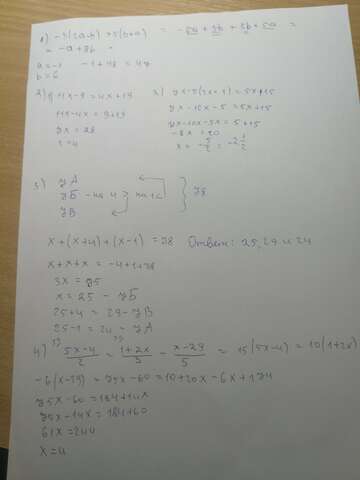 1) -3(2a-b)+5(b+a) = -5a+3b+3b+5a =
= -a+8b =
a=-1    -1+48=47
b=6
2) 11x-9=4x+19
11x-4x=9+19
7x=28
x=4
2) 7x-5(2x+1)=5x+15
7x-10x-5=5x+15
7x-10x-5x=5+15
-8x=20
x=-5/2=-2 1/2
3) у А
у Б - на 4
у В
на 1 <
78
x+(x+4)+(x-1)=78    Ответ: 25, 29 и 24
x+x+x=-4+1+78
3x=75
x=25 - у Б
25+4=29 - у В
25-1=24 - у А
4) (5x-4)/2 = (1+2x)/3 - (x-29)/5 = 15(5x-4)=10(1+2x)
-6(x-29)=75x-60=10+20x-6x+174
75x-60=184+14x
75x-14x=184+60
61x=244
x=4